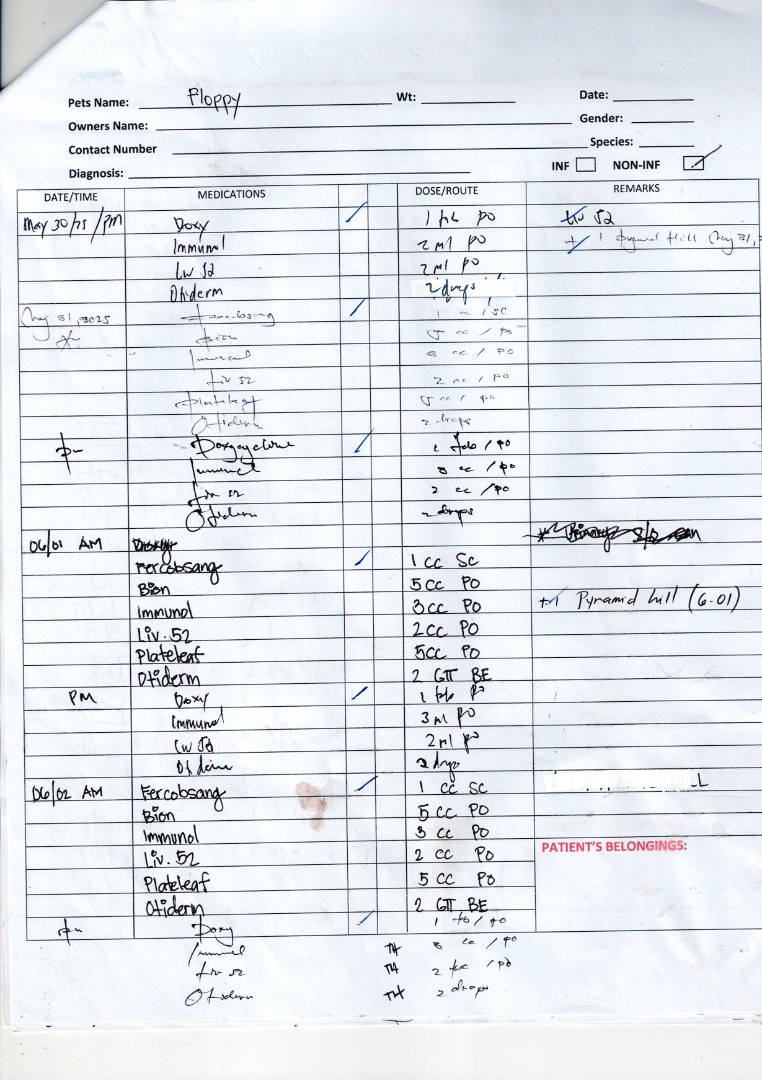 Pets Name: Floppy Wt: Date:
Owners Name: Gender:
Contact Number Species:
Diagnosis: INF NON-INF
DATE/TIME MEDICATIONS DOSE/ROUTE REMARKS
May 30/25 /PM Doxy 1 tab PO Liv 52
Immunol 2 ml PO + 1 Pyramid Hill (May 31,
Liv 52 2 ml PO
Otiderm 2 drops
May 31, 2025 Fercobsang 1 cc / SC
Bion 5 cc / PO
Immunol 3 cc / PO
Liv 52 2 cc / PO
Plateleaf 5 cc / PO
Otiderm 2 drops
pm Doxycycline 1 tab / PO
Immunol 3 cc / PO
Liv 52 2 cc / PO
Otiderm 2 drops
06/01 AM
Fercobsang 1 cc SC
Bion 5 cc PO
Immunol 3 cc PO +1 Pyramid hill (6-01)
Liv. 52 2 cc PO
Plateleaf 5 cc PO
Otiderm 2 GTT BE
PM Doxy 1 tab PO
Immunol 3 ml PO
Liv 52 2 ml PO
Otiderm 2 drops
06/02 AM Fercobsang 1 cc SC
Bion 5 cc PO
Immunol 3 cc PO
PATIENT'S BELONGINGS:
Liv. 52 2 cc PO
Plateleaf 5 cc PO
Otiderm 2 GTT BE
pm Doxy 1 tb / PO
Immunol TH 3 cc / PO
Liv 52 TH 2 cc / PO
Otiderm TH 2 drops